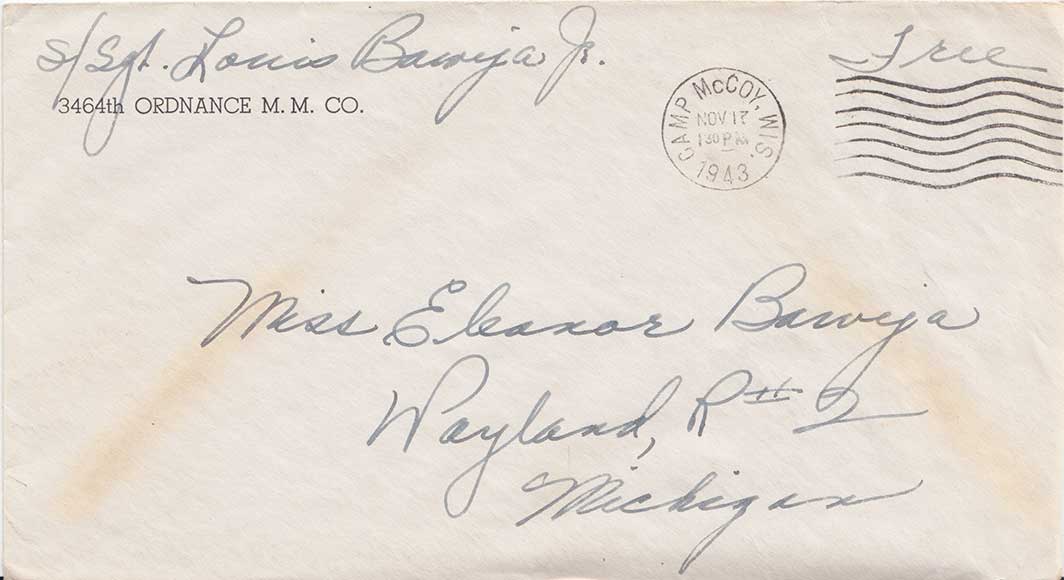 S/Sgt. Louis Bawija Jr.
3464th ORDNANCE M. M. CO.
Free
CAMP McCOY, WIS.
NOV 17
1 30 PM
1943
Miss Eleanor Bawija
Wayland, R# 2
Michigan